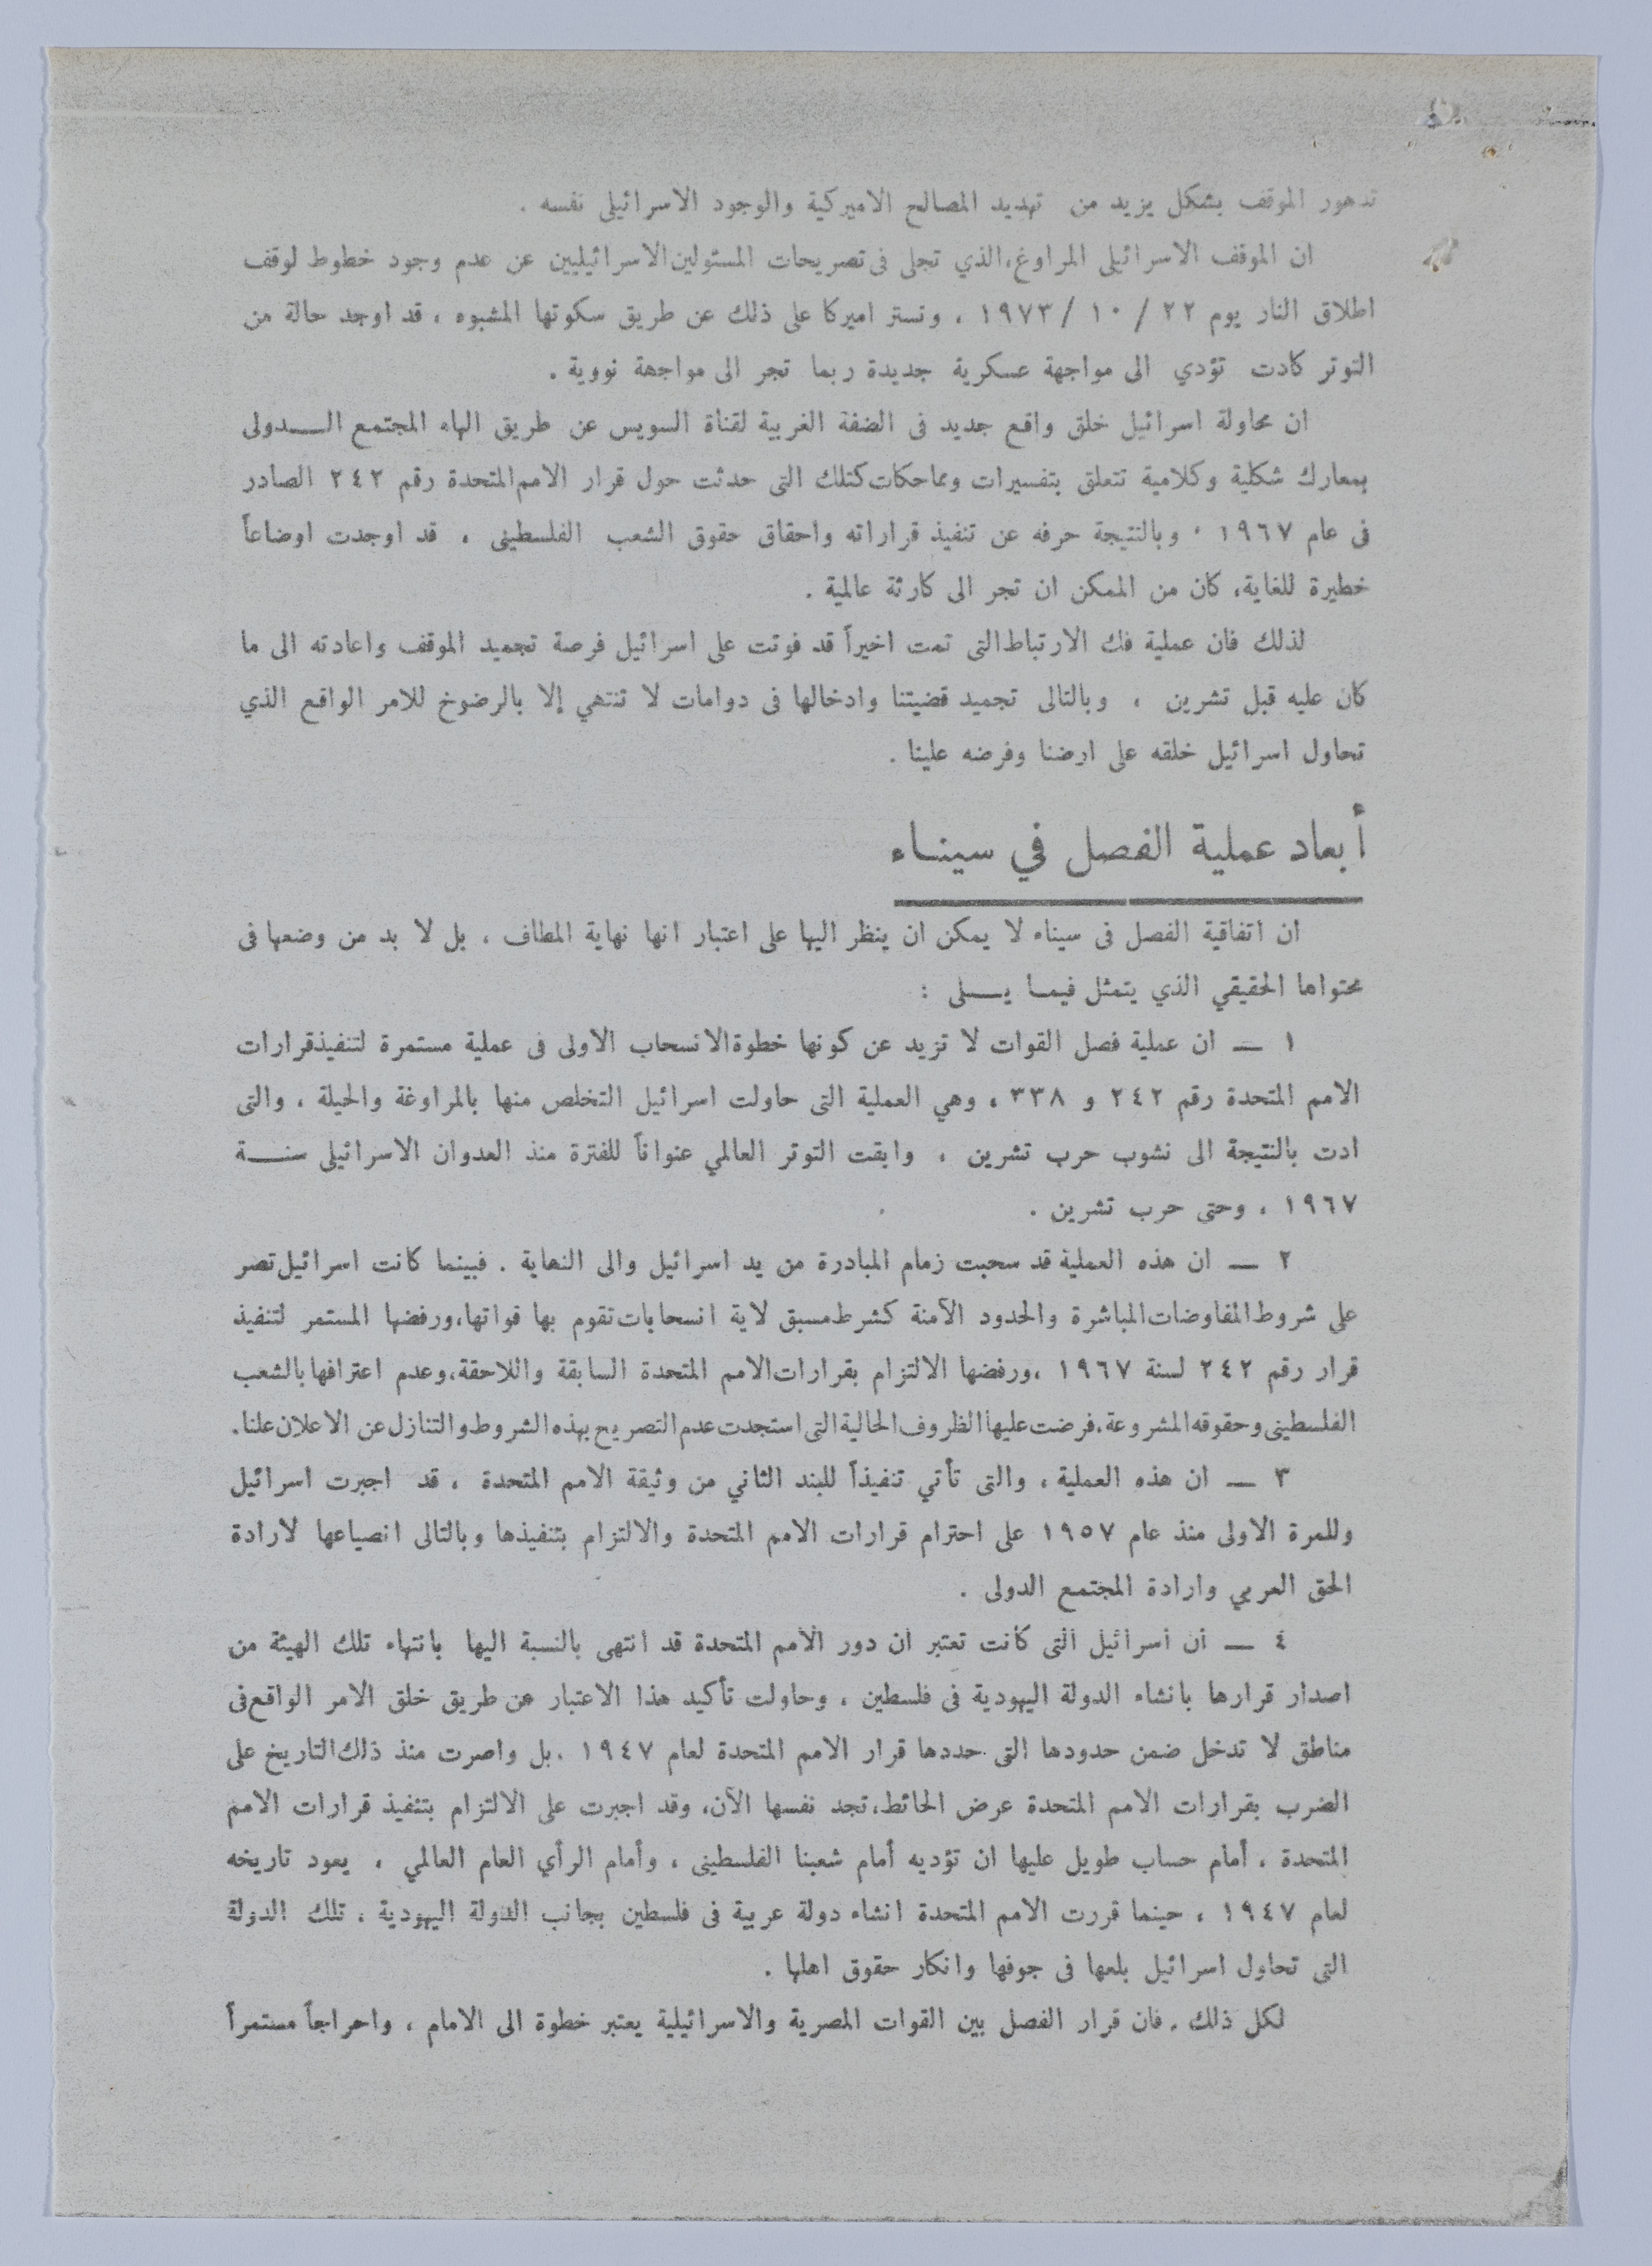 تدهور الموقف بشكل يزيد من تهديد المصالح الاميركية والوجود الاسرائيلى نفسه .
ان الموقف الاسرائيلى المراوغ، الذي تجلى فى تصريحات المسئولين الاسرائيليين عن عدم وجود خطوط لوقف
اطلاق النار يوم ٢٢ / ١٠ / ١٩٧٣ ، وتستر اميركا على ذلك عن طريق سكوتها المشبوه ، قد اوجد حالة من
التوتر كادت تؤدي الى مواجهة عسكرية جديدة ربما تجر الى مواجهة نووية .
ان محاولة اسرائيل خلق واقع جديد فى الضفة الغربية لقناة السويس عن طريق الهاء المجتمع الـــدولى
بمعارك شكلية وكلامية تتعلق بتفسيرات ومماحكات كتلك التى حدثت حول قرار الامم المتحدة رقم ٢٤٢ الصادر
فى عام ١٩٦٧ ، وبالنتيجة حرفه عن تنفيذ قراراته واحقاق حقوق الشعب الفلسطينى ، قد اوجدت اوضاعاً
خطيرة للغاية، كان من الممكن ان تجر الى كارثة عالمية .
لذلك فان عملية فك الارتباط التى تمت اخيراً قد فوتت على اسرائيل فرصة تجميد الموقف واعادته الى ما
كان عليه قبل تشرين ، وبالتالى تجميد قضيتنا وادخالها فى دوامات لا تنتهي إلا بالرضوخ للامر الواقع الذي
تحاول اسرائيل خلقه على ارضنا وفرضه علينا .
أبعاد عملية الفصل في سينــاء
ان اتفاقية الفصل فى سيناء لا يمكن ان ينظر اليها على اعتبار انها نهاية المطاف ، بل لا بد من وضعها فى
محتواها الحقيقي الذي يتمثل فيمــا يـــلى :
١ — ان عملية فصل القوات لا تزيد عن كونها خطوة الانسحاب الاولى فى عملية مستمرة لتنفيذ قرارات
الامم المتحدة رقم ٢٤٢ و ٣٣٨ ، وهي العملية التى حاولت اسرائيل التخلص منها بالمراوغة والحيلة ، والتى
ادت بالنتيجة الى نشوب حرب تشرين ، وابقت التوتر العالمي عنواناً للفترة منذ العدوان الاسرائيلى سنــــة
١٩٦٧ ، وحتى حرب تشرين .
٢ — ان هذه العملية قد سحبت زمام المبادرة من يد اسرائيل والى النهاية . فبينما كانت اسرائيل تصر
على شروط المفاوضات المباشرة والحدود الآمنة كشرط مسبق لاية انسحابات تقوم بها قواتها، ورفضها المستمر لتنفيذ
قرار رقم ٢٤٢ لسنة ١٩٦٧ ، ورفضها الالتزام بقرارات الامم المتحدة السابقة واللاحقة، وعدم اعترافها بالشعب
الفلسطينى وحقوقه المشروعة، فرضت عليها الظروف الحالية التى استجدت عدم التصريح بهذه الشروط والتنازل عن الاعلان علنا.
٣ — ان هذه العملية ، والتى تأتي تنفيذاً للبند الثاني من وثيقة الامم المتحدة ، قد اجبرت اسرائيل
وللمرة الاولى منذ عام ١٩٥٧ على احترام قرارات الامم المتحدة والالتزام بتنفيذها وبالتالى انصياعها لارادة
الحق العربي وارادة المجتمع الدولى .
٤ — ان اسرائيل التى كانت تعتبر ان دور الامم المتحدة قد انتهى بالنسبة اليها بانتهاء تلك الهيئة من
اصدار قرارها بانشاء الدولة اليهودية فى فلسطين ، وحاولت تأكيد هذا الاعتبار عن طريق خلق الامر الواقع فى
مناطق لا تدخل ضمن حدودها التى حددها قرار الامم المتحدة لعام ١٩٤٧ . بل واصرت منذ ذلك التاريخ على
الضرب بقرارات الامم المتحدة عرض الحائط، تجد نفسها الآن، وقد اجبرت على الالتزام بتنفيذ قرارات الامم
المتحدة ، أمام حساب طويل عليها ان تؤديه أمام شعبنا الفلسطينى ، وأمام الرأي العام العالمي ، يعود تاريخه
لعام ١٩٤٧ ، حينما قررت الامم المتحدة انشاء دولة عربية فى فلسطين بجانب الدولة اليهودية ، تلك الدولة
التى تحاول اسرائيل بلعها فى جوفها وانكار حقوق اهلها .
لكل ذلك ، فان قرار الفصل بين القوات المصرية والاسرائيلية يعتبر خطوة الى الامام ، واحراجاً مستمراً